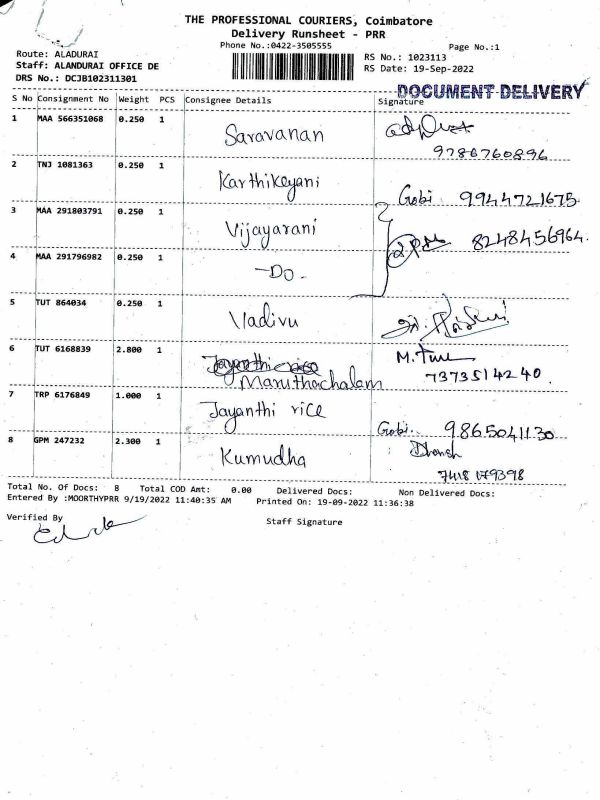 THE PROFESSIONAL COURIERS, Coimbatore
Delivery Runsheet - PRR
Phone No.:0422-3505555
Page No.:1
Route: ALADURAI
Staff: ALANDURAI OFFICE DE
DRS No.: DCJB102311301
RS No.: 1023113
RS Date: 19-Sep-2022
DOCUMENT DELIVERY
S No Consignment No Weight PCS Consignee Details Signature
1 MAA 566351068 0.250 1 Saravanan
9786760896
2 TNJ 1081363 0.250 1 Karthikeyani Gobi 9944721675
3 MAA 291803791 0.250 1 Vijayarani 8248456964
4 MAA 291796982 0.250 1 -Do-
5 TUT 864034 0.250 1 Vadivu
6 TUT 6168839 2.800 1 Jayanthi rice
Maruthachalam 7373514240
7 TRP 6176849 1.000 1 Jayanthi rice Gobi. 9865041130
8 GPM 247232 2.300 1 Kumudha
7418179398
Total No. Of Docs: 8 Total COD Amt: 0.00 Delivered Docs: Non Delivered Docs:
Entered By :MOORTHYPRR 9/19/2022 11:40:35 AM Printed On: 19-09-2022 11:36:38
Verified By
Staff Signature